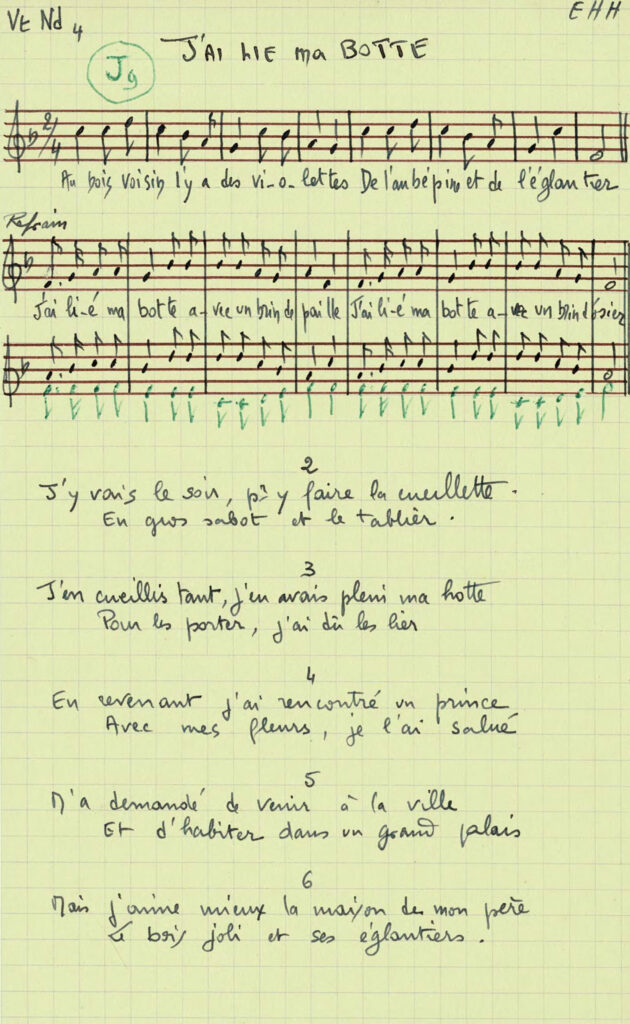 Vt Nd 4
EHH
J'AI LIE ma BOTTE
J9
2/4
Au bois voisin l'y a des vi-o-lettes De l'aubépine et de l'églantier
Refrain
J'ai li-é ma botte a-vec un brin de paille J'ai li-é ma botte a-vec un brin d'osier
2
J'y vais le soir, pr y faire la cueillette.
En gros sabot et le tablier.
3
J'en cueillis tant, j'en avais plein ma hotte
Pour les porter, j'ai dû les lier
4
En revenant j'ai rencontré un prince
Avec mes fleurs, je l'ai salué
5
M'a demandé de venir à la ville
Et d'habiter dans un grand palais
6
Mais j'aime mieux la maison de mon père
Le bois joli et ses églantiers.